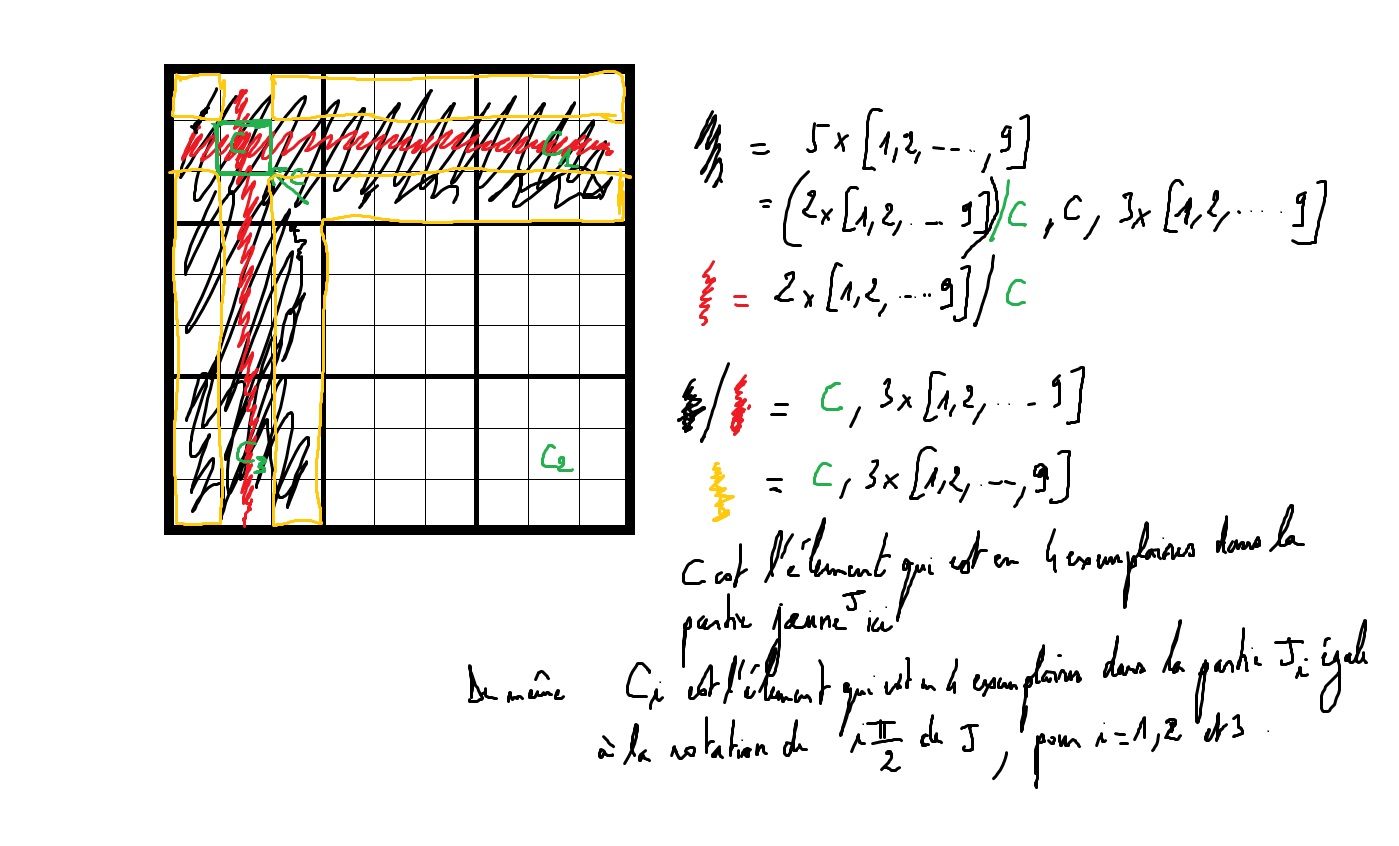 C C₁
= 5 x [1,2, ---, 9]
= (2x[1,2, .. - 9])/C , C, 3x [1,2, .... 9]
= 2x [1,2, --.. 9]/C
/ = C, 3x [1,2, ... - 9]
C₃ C₂
= C, 3x [1,2, --, 9]
C est l'élement qui est en 4 exemplaires dans la
partie jaune J ici
De même Ci est l'élement qui est en 4 exemplaires dans la partie Ji égale
à la rotation de i π/2 de J, pour i=1,2 et 3